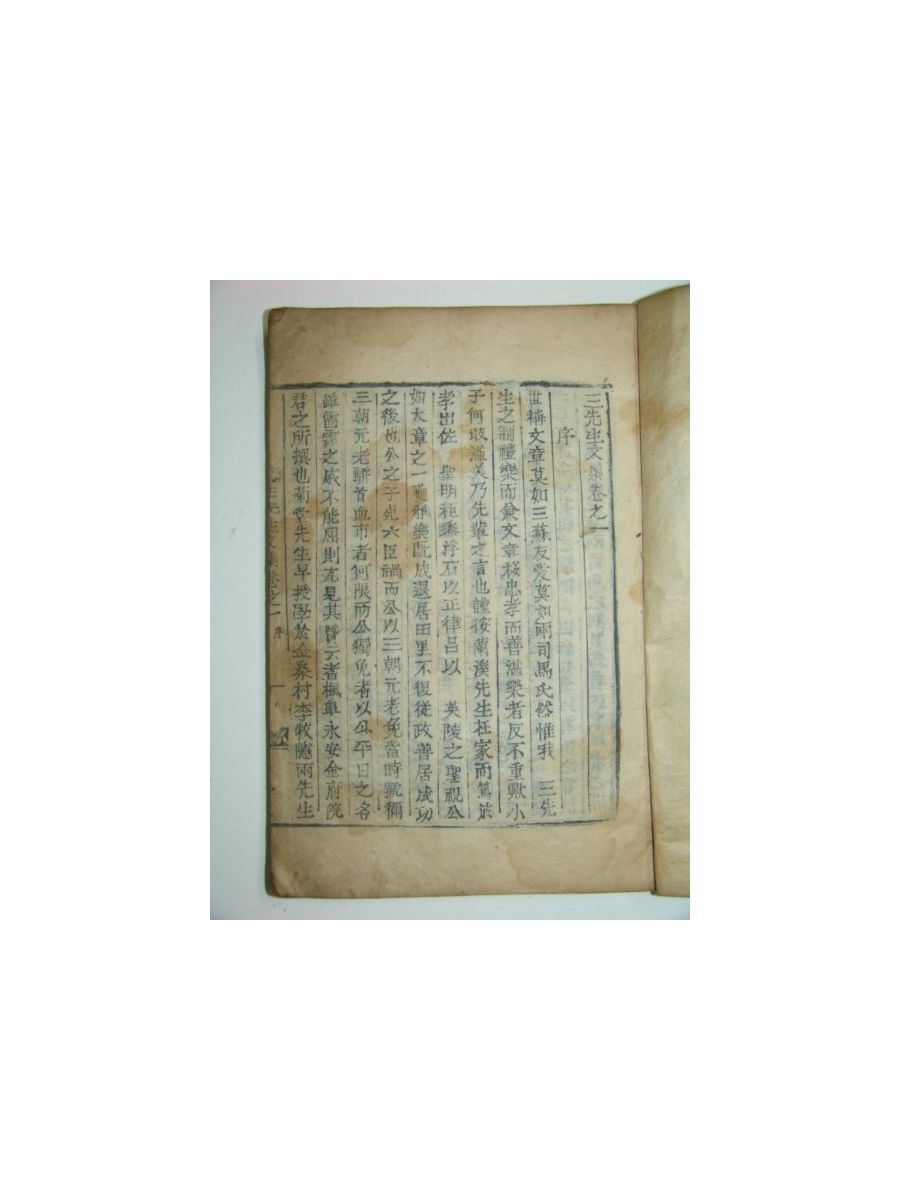 三先生文集卷之一
序
世稱文章莫如三蘇友愛莫如兩司馬氏然惟我 三先
生之制禮樂而兼文章移忠孝而善湛樂者反不重歟小
子何敢溢美乃先輩之言也謹按蘭溪先生在家而篤於
孝出佐 聖明秬黍浮石以正律呂以 英陵之聖視公
如大章之一夔雅樂旣成退居田里不復從政善居成功
之後也公之子死六臣禍而公以三朝元老免當時號稱
三朝元老騈首血市者何限而公獨免者以公平日之名
雖雷霆之威不能屈則尤見其賢云者楓皐永安金府院
君之所撰也菊堂先生早授學於金桑村李牧隱兩先生
三先生文集卷之一 序 一